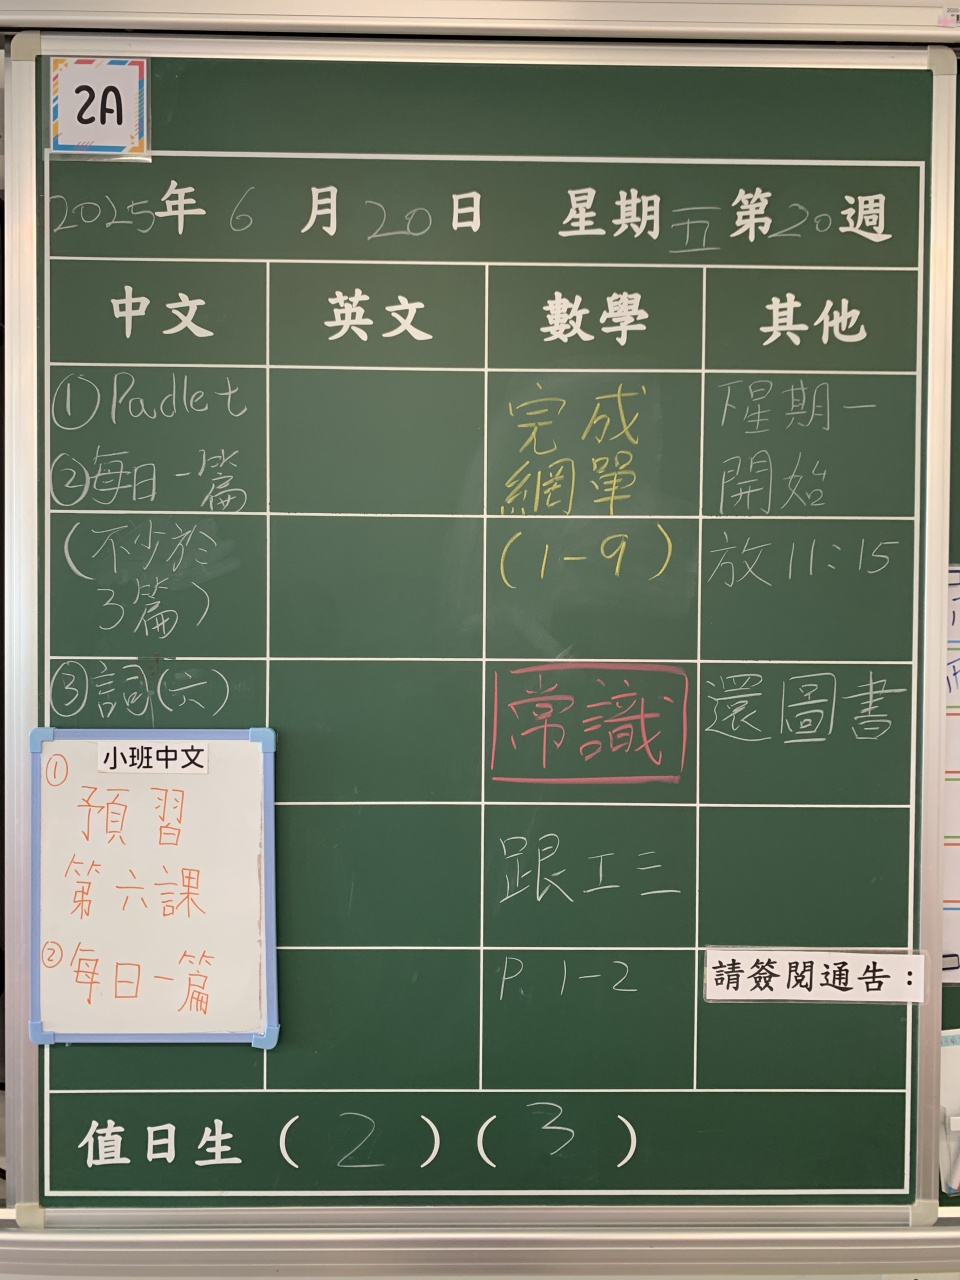 2A
2025年 6 月 20 日 星期 五 第 20 週
中文 英文 數學 其他
①Padlet
②每日一篇
(不少於
3篇)
③詞(六)
小班中文
①
預習
第六課
②每日一篇
完成
網單
(1-9)
常識
跟工三
P. 1-2
下星期一
開始
放 11:15
還圖書
請簽閱通告：
值日生 ( 2 ) ( 3 )